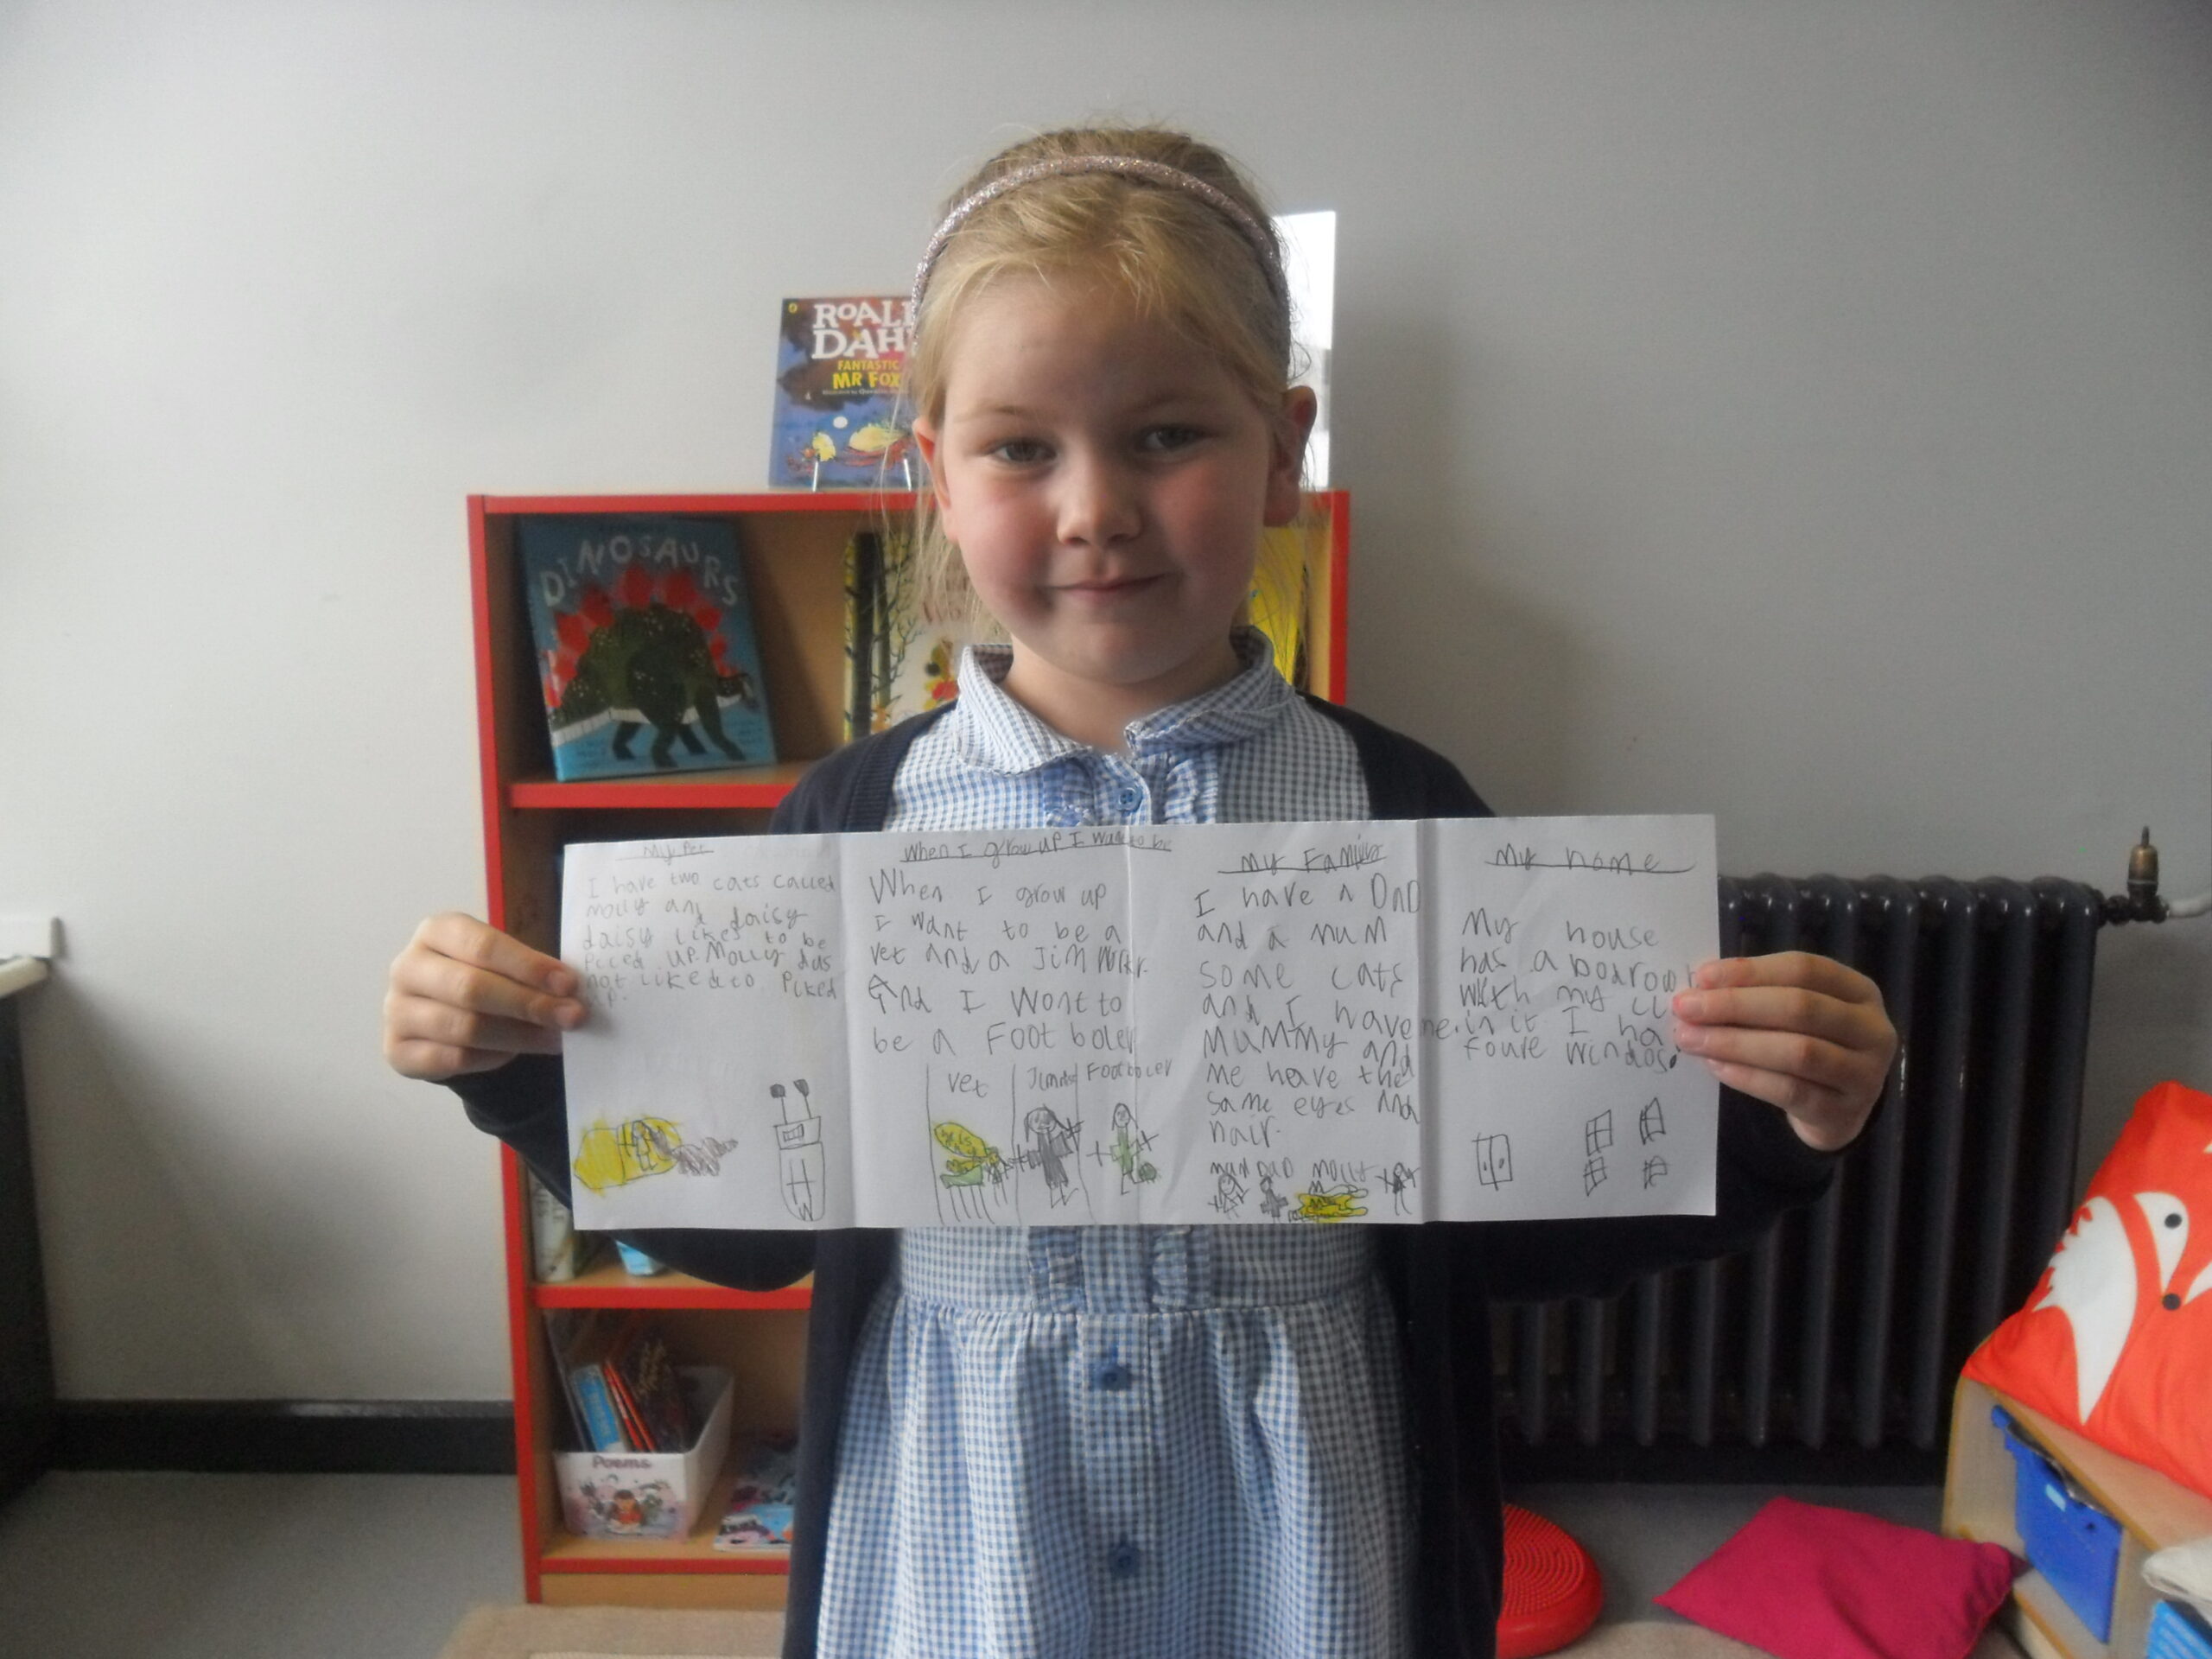 ROALD DAHL
FANTASTIC
MR FOX
DINOSAURS
My Pet
I have two cats called
molly and daisy
daisy likes to be
Piced up. Molly dus
not liked to Piked
up.
When I grow up I want to be
When I grow up
I want to be a
vet and a Jim
And I Wont to
be a Foot boler
vet
Footboler
My Family
I have a DAD
and a mum
some cats
and I have me.
Mummy and
Me have the
same eyes and
hair.
mum DAD molly
My home
My house
has a
with my
in it I ha
foure windos.
Poems